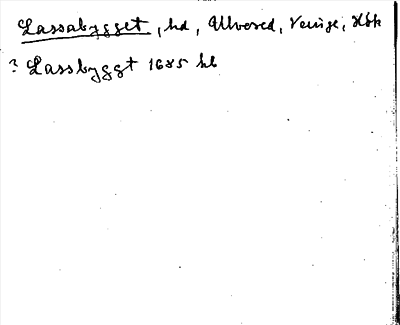 Lassabygget, hd, Ullvared, Veinge, Hbk
? Lassbyggt 1685 hb